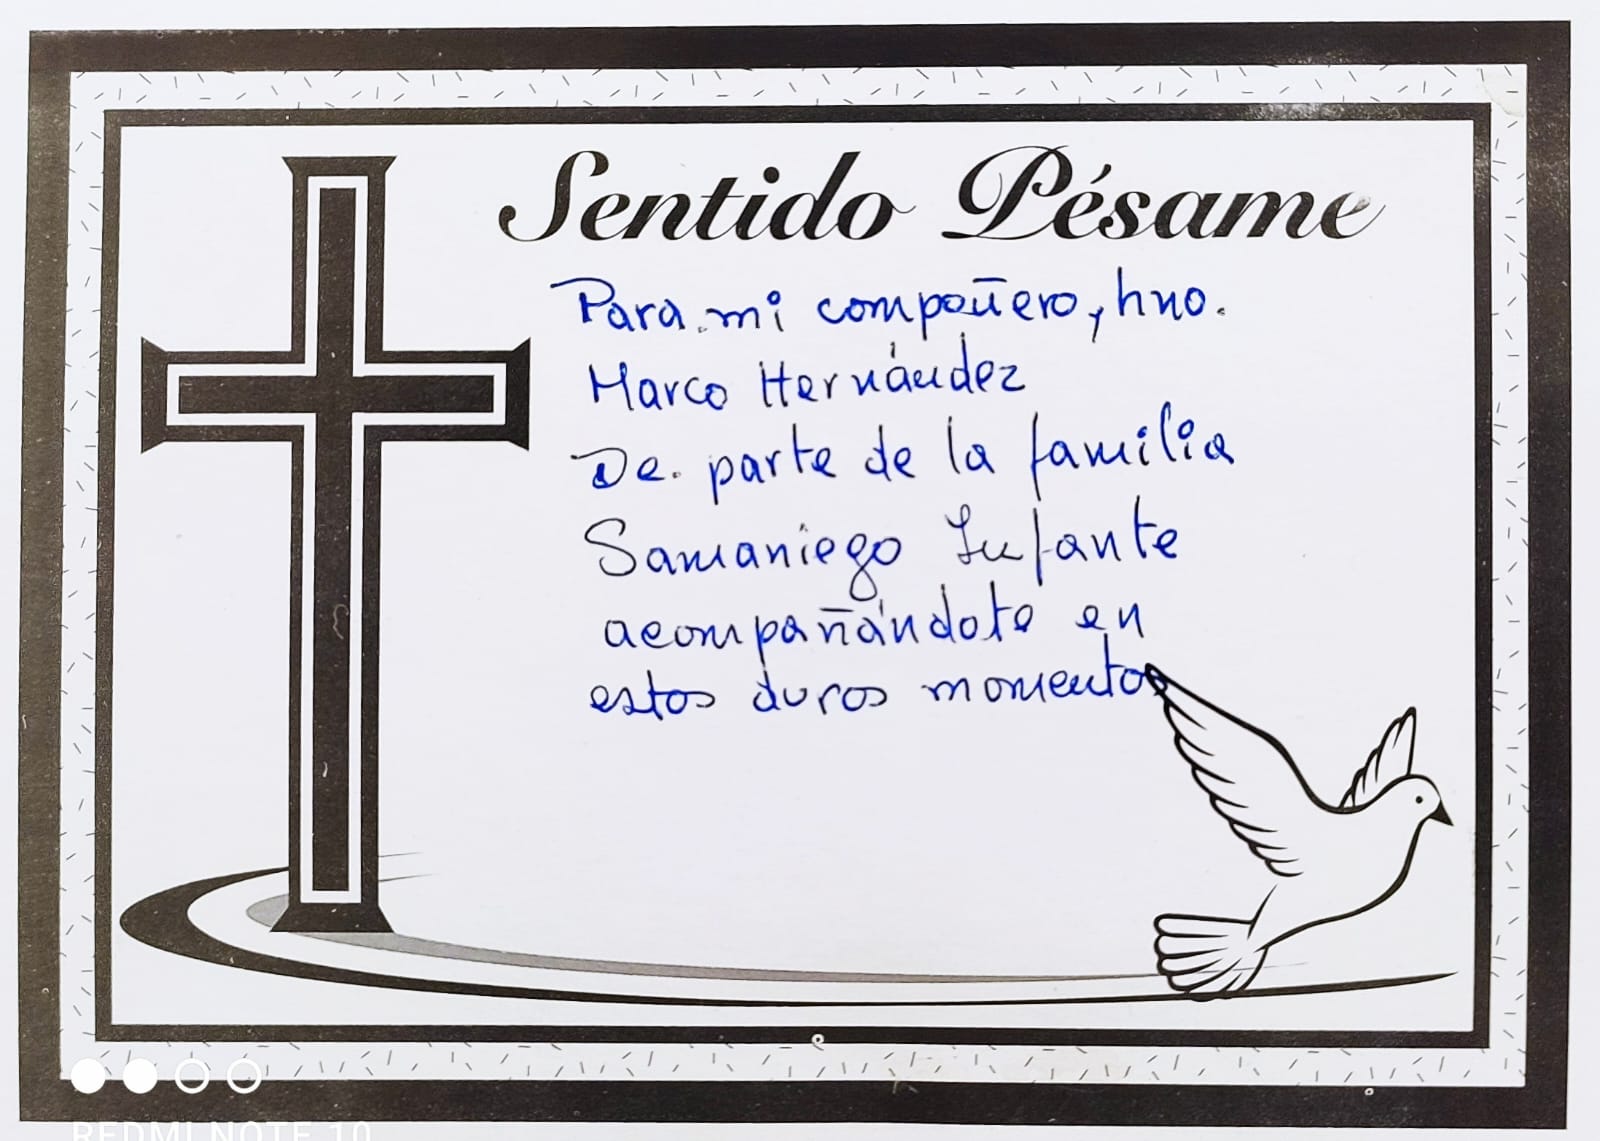 Sentido Pésame
Para mi compañero, hno.
Marco Hernández
De parte de la familia
Samaniego Infante
acompañándote en
estos duros momentos
REDMI NOTE 10